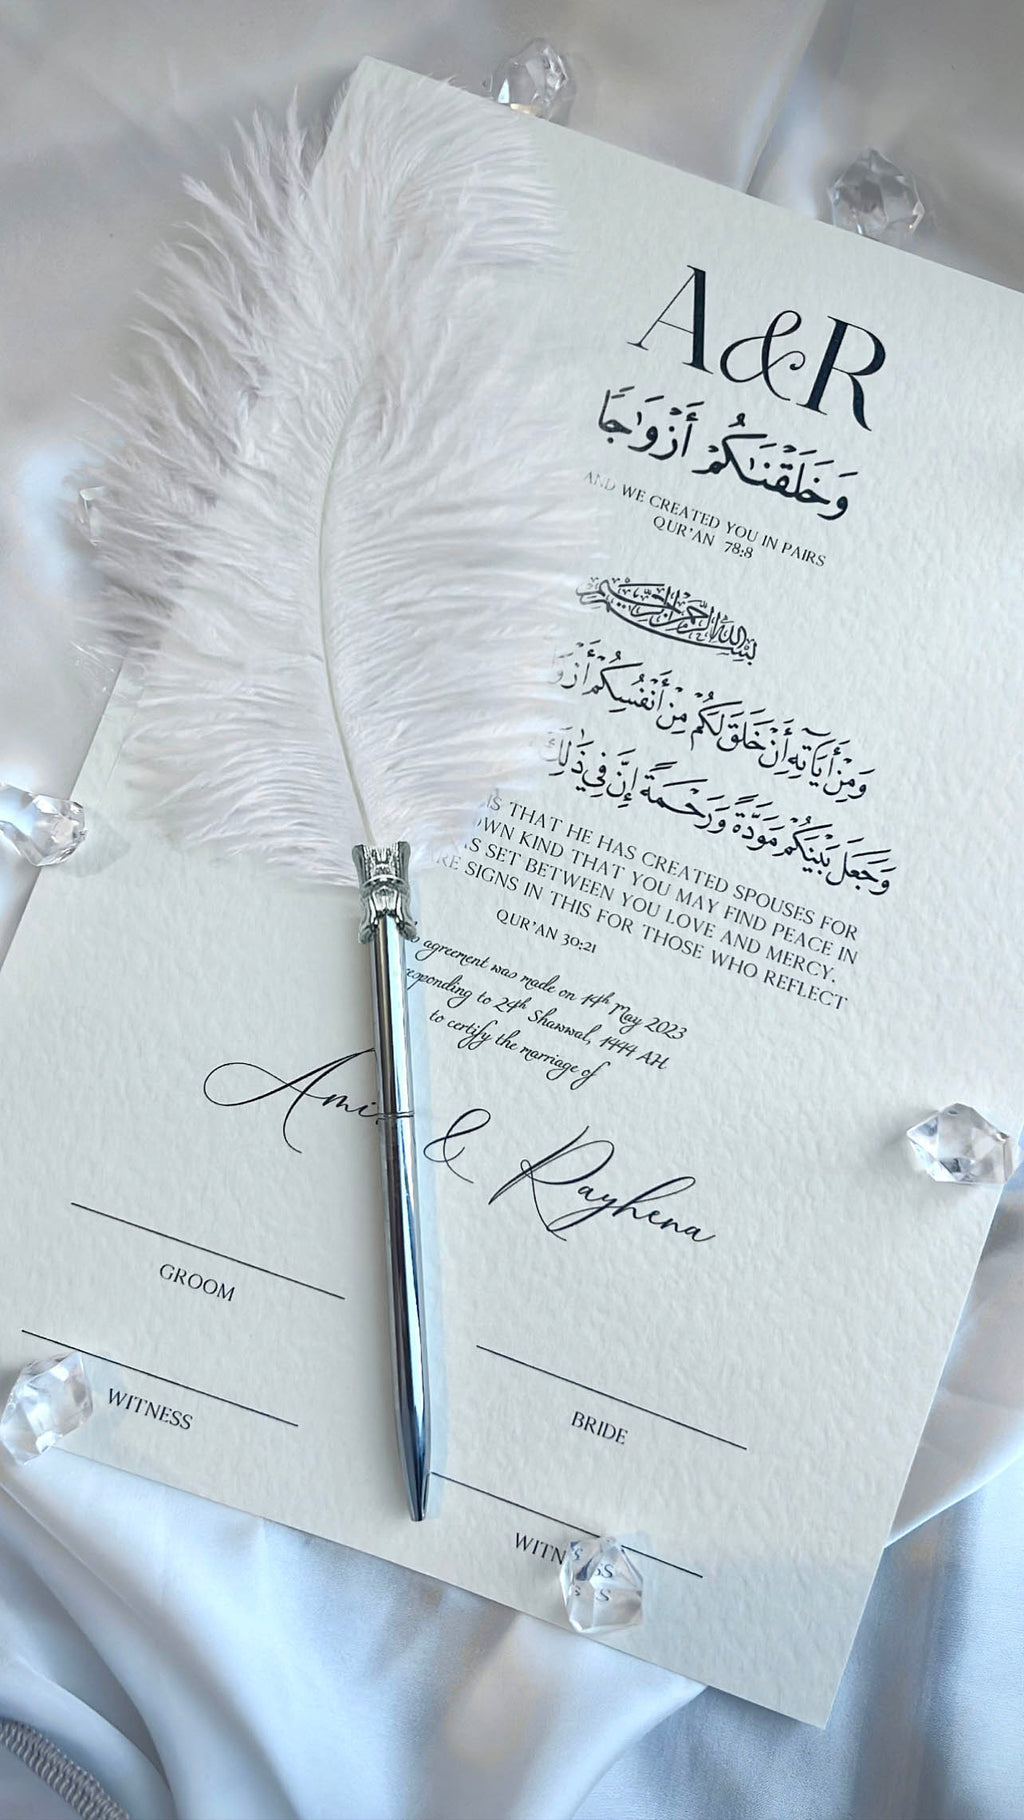 A&R
وَخَلَقْنَـٰكُمْ أَزْوَٰجًا
AND WE CREATED YOU IN PAIRS
QUR'AN 78:8
بِسْمِ اللهِ الرَّحْمٰنِ الرَّحِيْمِ
وَمِنْ آيَاتِهِ أَنْ خَلَقَ لَكُم مِّنْ أَنفُسِكُمْ
وَجَعَلَ بَيْنَكُم مَّوَدَّةً وَرَحْمَةً إِنَّ فِي ذَٰلِكَ
IS THAT HE HAS CREATED SPOUSES FOR
OWN KIND THAT YOU MAY FIND PEACE IN
SET BETWEEN YOU LOVE AND MERCY.
SIGNS IN THIS FOR THOSE WHO REFLECT
QUR'AN 30:21
agreement was made on 14th May 2023
to 24th Shawwal, 1444 AH
to certify the marriage of
& Rayhena
GROOM
BRIDE
WITNESS